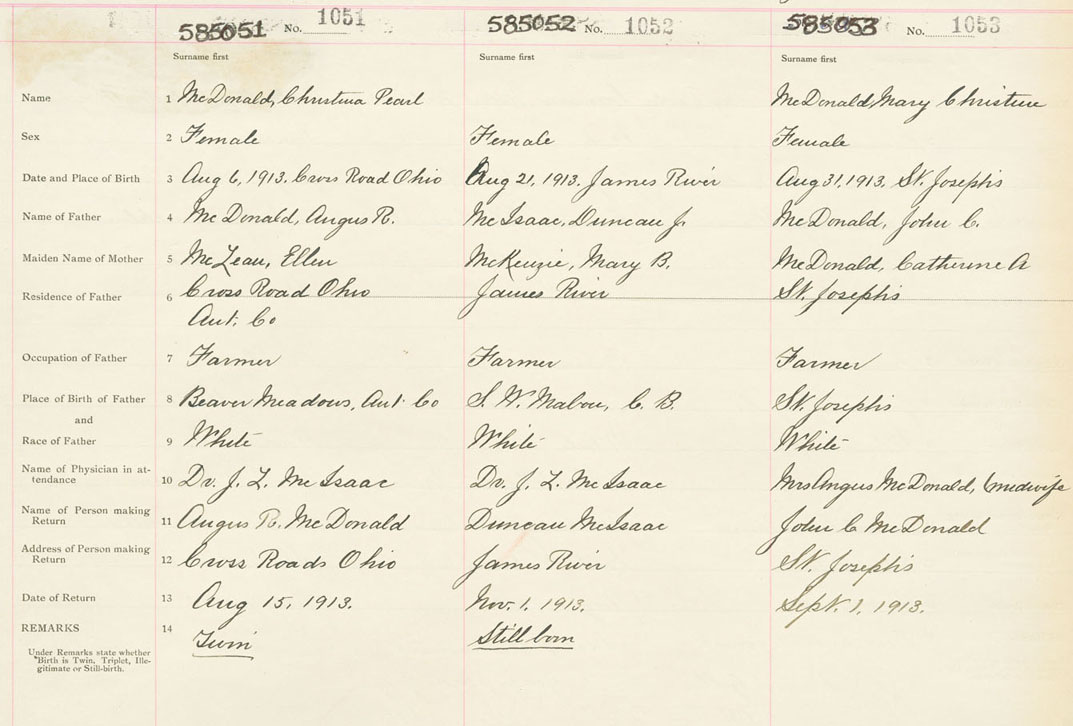 585051 No. 1051 585052 No. 1052 585053 No. 1053
Surname first Surname first Surname first
Name 1 McDonald, Christina Pearl McDonald, Mary Christine
Sex 2 Female Female Female
Date and Place of Birth 3 Aug 6, 1913. Cross Road Ohio Aug 21, 1913. James River Aug 31, 1913, St. Josephs
Name of Father 4 McDonald, Angus R. McIsaac, Duncan J. McDonald, John C.
Maiden Name of Mother 5 McLean, Ellen McKenzie, Mary B. McDonald, Catherine A
Residence of Father 6 Cross Road Ohio James River St. Josephs
Ant. Co
Occupation of Father 7 Farmer Farmer Farmer
Place of Birth of Father 8 Beaver Meadows, Ant. Co S. W. Mabou, C. B. St. Josephs
and
Race of Father 9 White White White
Name of Physician in at-
tendance 10 Dr. J. L. McIsaac Dr. J. L. McIsaac Mrs Angus McDonald, (midwife
Name of Person making
Return 11 Angus R. McDonald Duncan McIsaac John C McDonald
Address of Person making
Return 12 Cross Roads Ohio James River St. Josephs
Date of Return 13 Aug 15, 1913. Nov. 1. 1913. Sept. 1. 1913.
REMARKS 14 Twin Still born
Under Remarks state whether
Birth is Twin, Triplet, Ille-
gitimate or Still-birth.